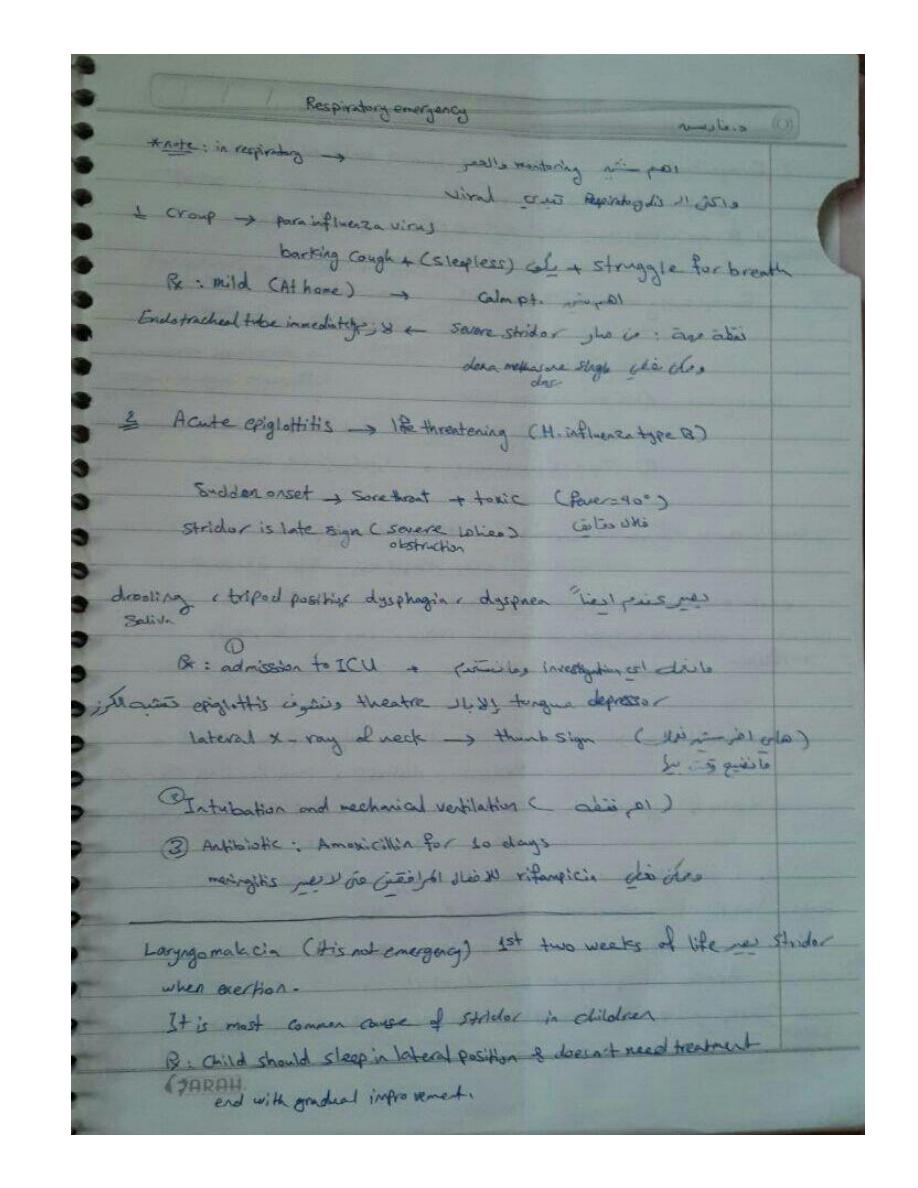 Respiratory emergency
*note: in respiratory → اهم monitoring والعمر
واكثر الـ تكون viral
1 Croup → parainfluenza virus
barking Cough + (sleepless) + struggle for breath
Rx: mild (At home) → Calm pt. اهم
نقطة مهمة: من صار severe stridor ← Endotracheal tube immediately
وممكن نعطي single dose
2 Acute epiglottitis → life threatening (H. influenza type B)
Sudden onset → Sore throat + toxic (fever=40°)
خلال دقايق
stridor is late sign (severe obstruction)
drooling saliva, tripod position, dysphagia, dyspnea يصير عندهم ايضاً
Rx: ① admission to ICU + investigation اي
tongue depressor إلا بالـ theatre ونشوف epiglottis تشبه الكرز
lateral x-ray of neck → thumb sign (
② Intubation and mechanical ventilation (اهم نقطة)
③ Antibiotic: Amoxicillin for 10 days
وممكن نعطي rifampicin للاطفال المرافقين حتى لا يصير meningitis
Laryngomalacia (it is not emergency) 1st two weeks of life يصير stridor
when exertion.
It is most common cause of stridor in children
Rx: Child should sleep in lateral position & doesn't need treatment
SARAH
end with gradual improvement.